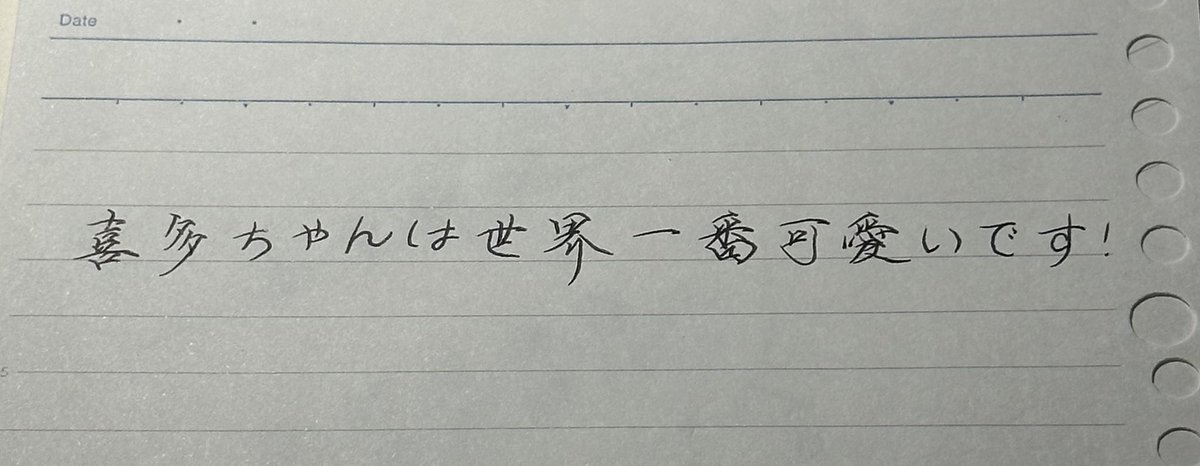 Date
喜多ちゃんは世界一番可愛いです!
5